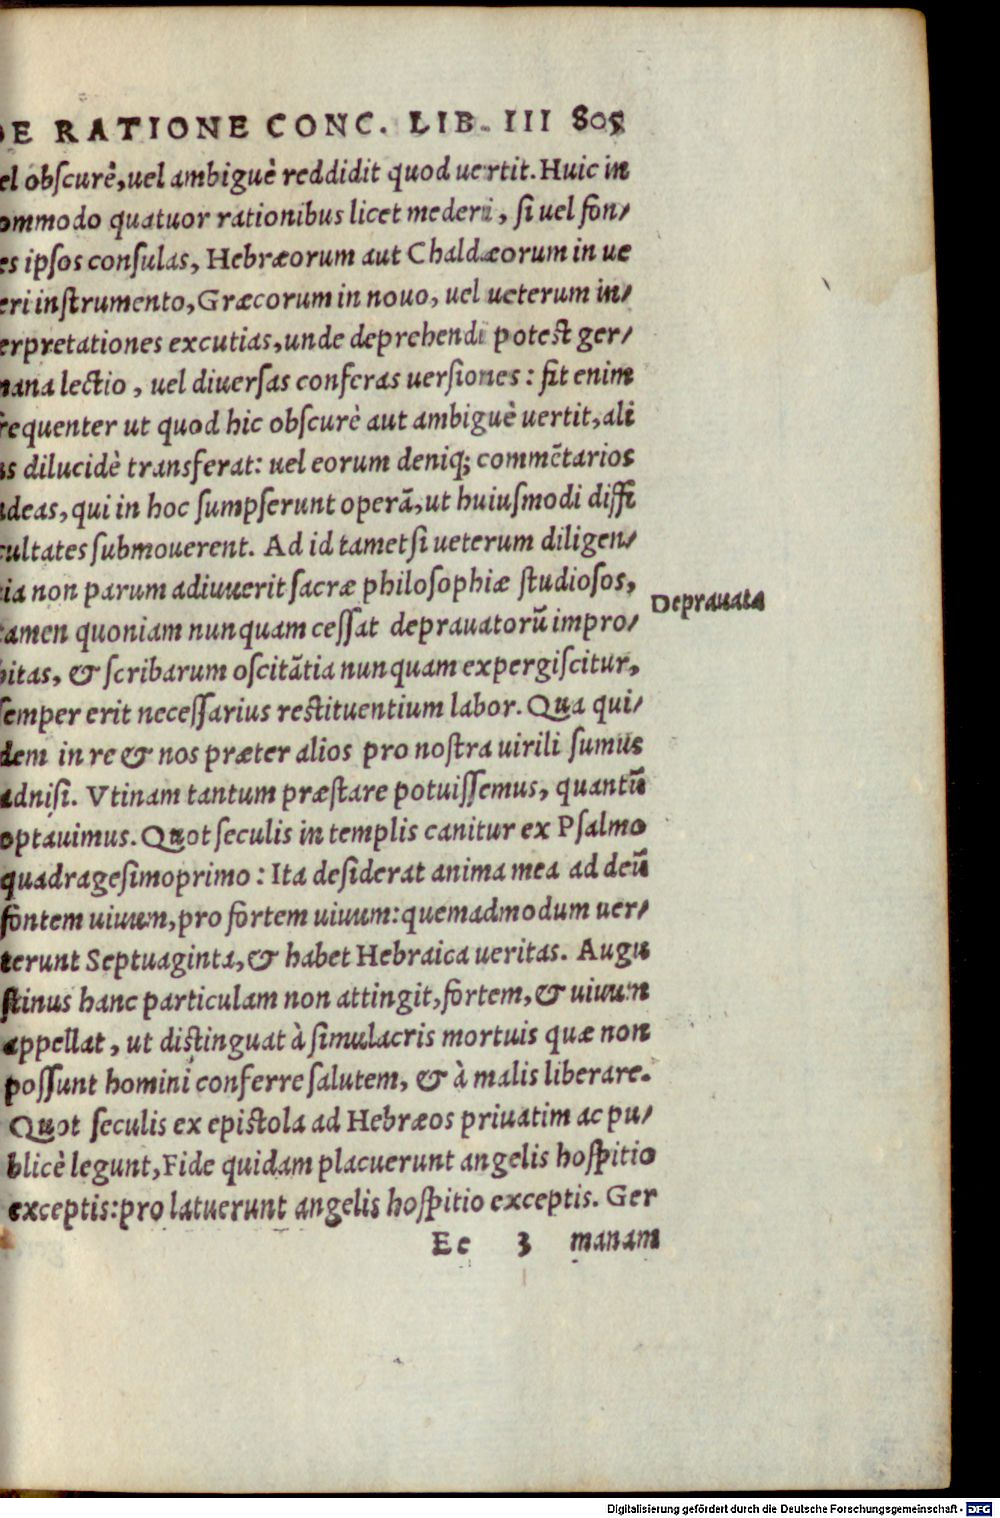 DE RATIONE CONC. LIB. III 805
el obſcurè, uel ambiguè reddidit quod uertit. Huic in
ommodo quatuor rationibus licet mederi, ſi uel fon/
es ipſos conſulas, Hebræorum aut Chaldæorum in ue
eri inſtrumento, Græcorum in nouo, uel ueterum in/
erpretationes excutias, unde deprehendi poteſt ger/
mana lectio, uel diuerſas conferas uerſiones: fit enim
frequenter ut quod hic obſcurè aut ambiguè uertit, ali
us dilucidè transferat: uel eorum deniq; commẽtarios
adeas, qui in hoc ſumpſerunt operã, ut huiuſmodi diffi
cultates ſubmouerent. Ad id tametſi ueterum diligen/
tia non parum adiuuerit ſacræ philoſophiæ ſtudioſos,
tamen quoniam nunquam ceſſat deprauatorũ impro/
bitas, & ſcribarum oſcitãtia nunquam expergiſcitur,
ſemper erit neceſſarius reſtituentium labor. Qua qui/
dem in re & nos præter alios pro noſtra uirili ſumus
adniſi. Vtinam tantum præſtare potuiſſemus, quantũ
optauimus. Quot ſeculis in templis canitur ex Pſalmo
quadrageſimoprimo: Ita deſiderat anima mea ad deũ
fontem uiuum, pro fortem uiuum: quemadmodum uer/
terunt Septuaginta, & habet Hebraica ueritas. Augu
ſtinus hanc particulam non attingit, fortem, & uiuum
appellat, ut diſtinguat à ſimulacris mortuis quæ non
poſſunt homini conferre ſalutem, & à malis liberare.
Quot ſeculis ex epiſtola ad Hebræos priuatim ac pu/
blicè legunt, Fide quidam placuerunt angelis hoſpitio
exceptis: pro latuerunt angelis hoſpitio exceptis. Ger
Ee 3 manam
Deprauata
Digitalisierung gefördert durch die Deutsche Forschungsgemeinschaft - DFG